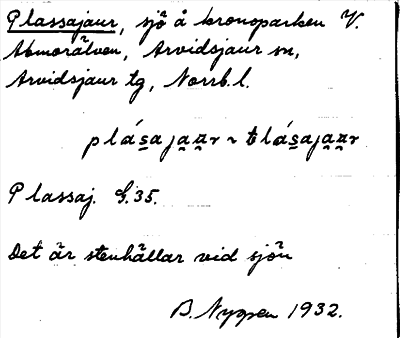 Plassajaur, sjö å kronoparken V.
Abmorälven, Arvidsjaur sn,
Arvidsjaur tg, Norrb.l.
plás̱aja̱a̱r ~ tlás̱aja̱a̱r
Plassaj. G.35.
Det är stenhällar vid sjön
B. Nygren 1932.